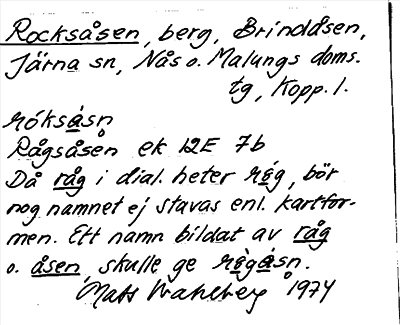 Rocksåsen, berg, Brindåsen,
Järna sn, Nås o. Malungs doms.
tg, Kopp. l.
róksåsn̥
Rågsåsen ek 12E 7b
Då råg i dial. heter rég, bör
nog namnet ej stavas enl. kartfor-
men. Ett namn bildat av råg
o. åsen, skulle ge règåsn̥.
Mats Wahlberg 1974